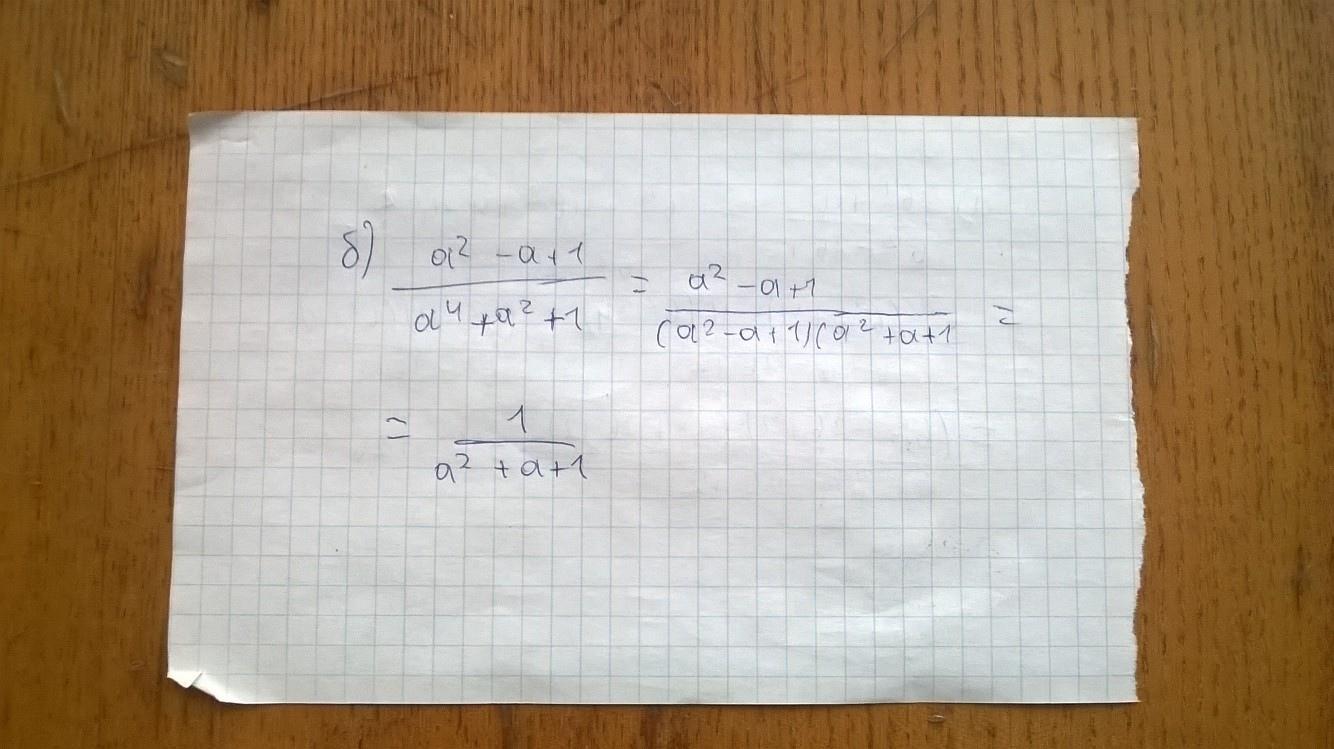 б) (a² - a + 1)/(a⁴ + a² + 1) = (a² - a + 1)/((a² - a + 1)(a² + a + 1 =
= 1/(a² + a + 1)